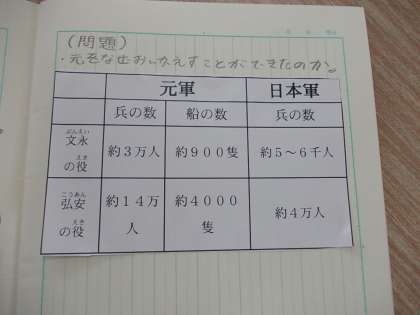 (問題)
・元をなぜおいかえすことができたのか。
元軍 日本軍
兵の数 船の数 兵の数
ぶんえい
文永
えき
の役
約3万人 約900隻 約5~6千人
こうあん
弘安
えき
の役
約14万
人
約4000
隻
約4万人